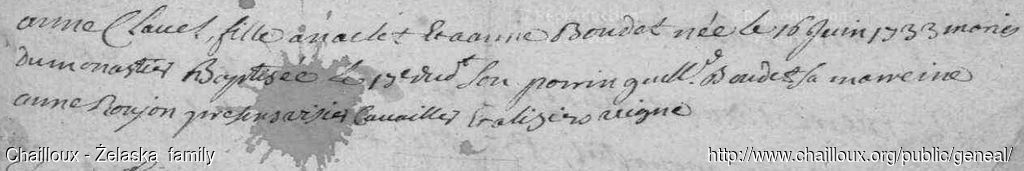 anne Clavel, fille a naclet Et a anne Boudet née le 16 Juin 1733 mariés
Du monastier Baptisée le 17e dudt Son parrin guillr. Boudet Sa marreine
anne Roujon presens Cavaillier Et vigne
Chailloux - Żelaska family
http://www.chailloux.org/public/geneal/